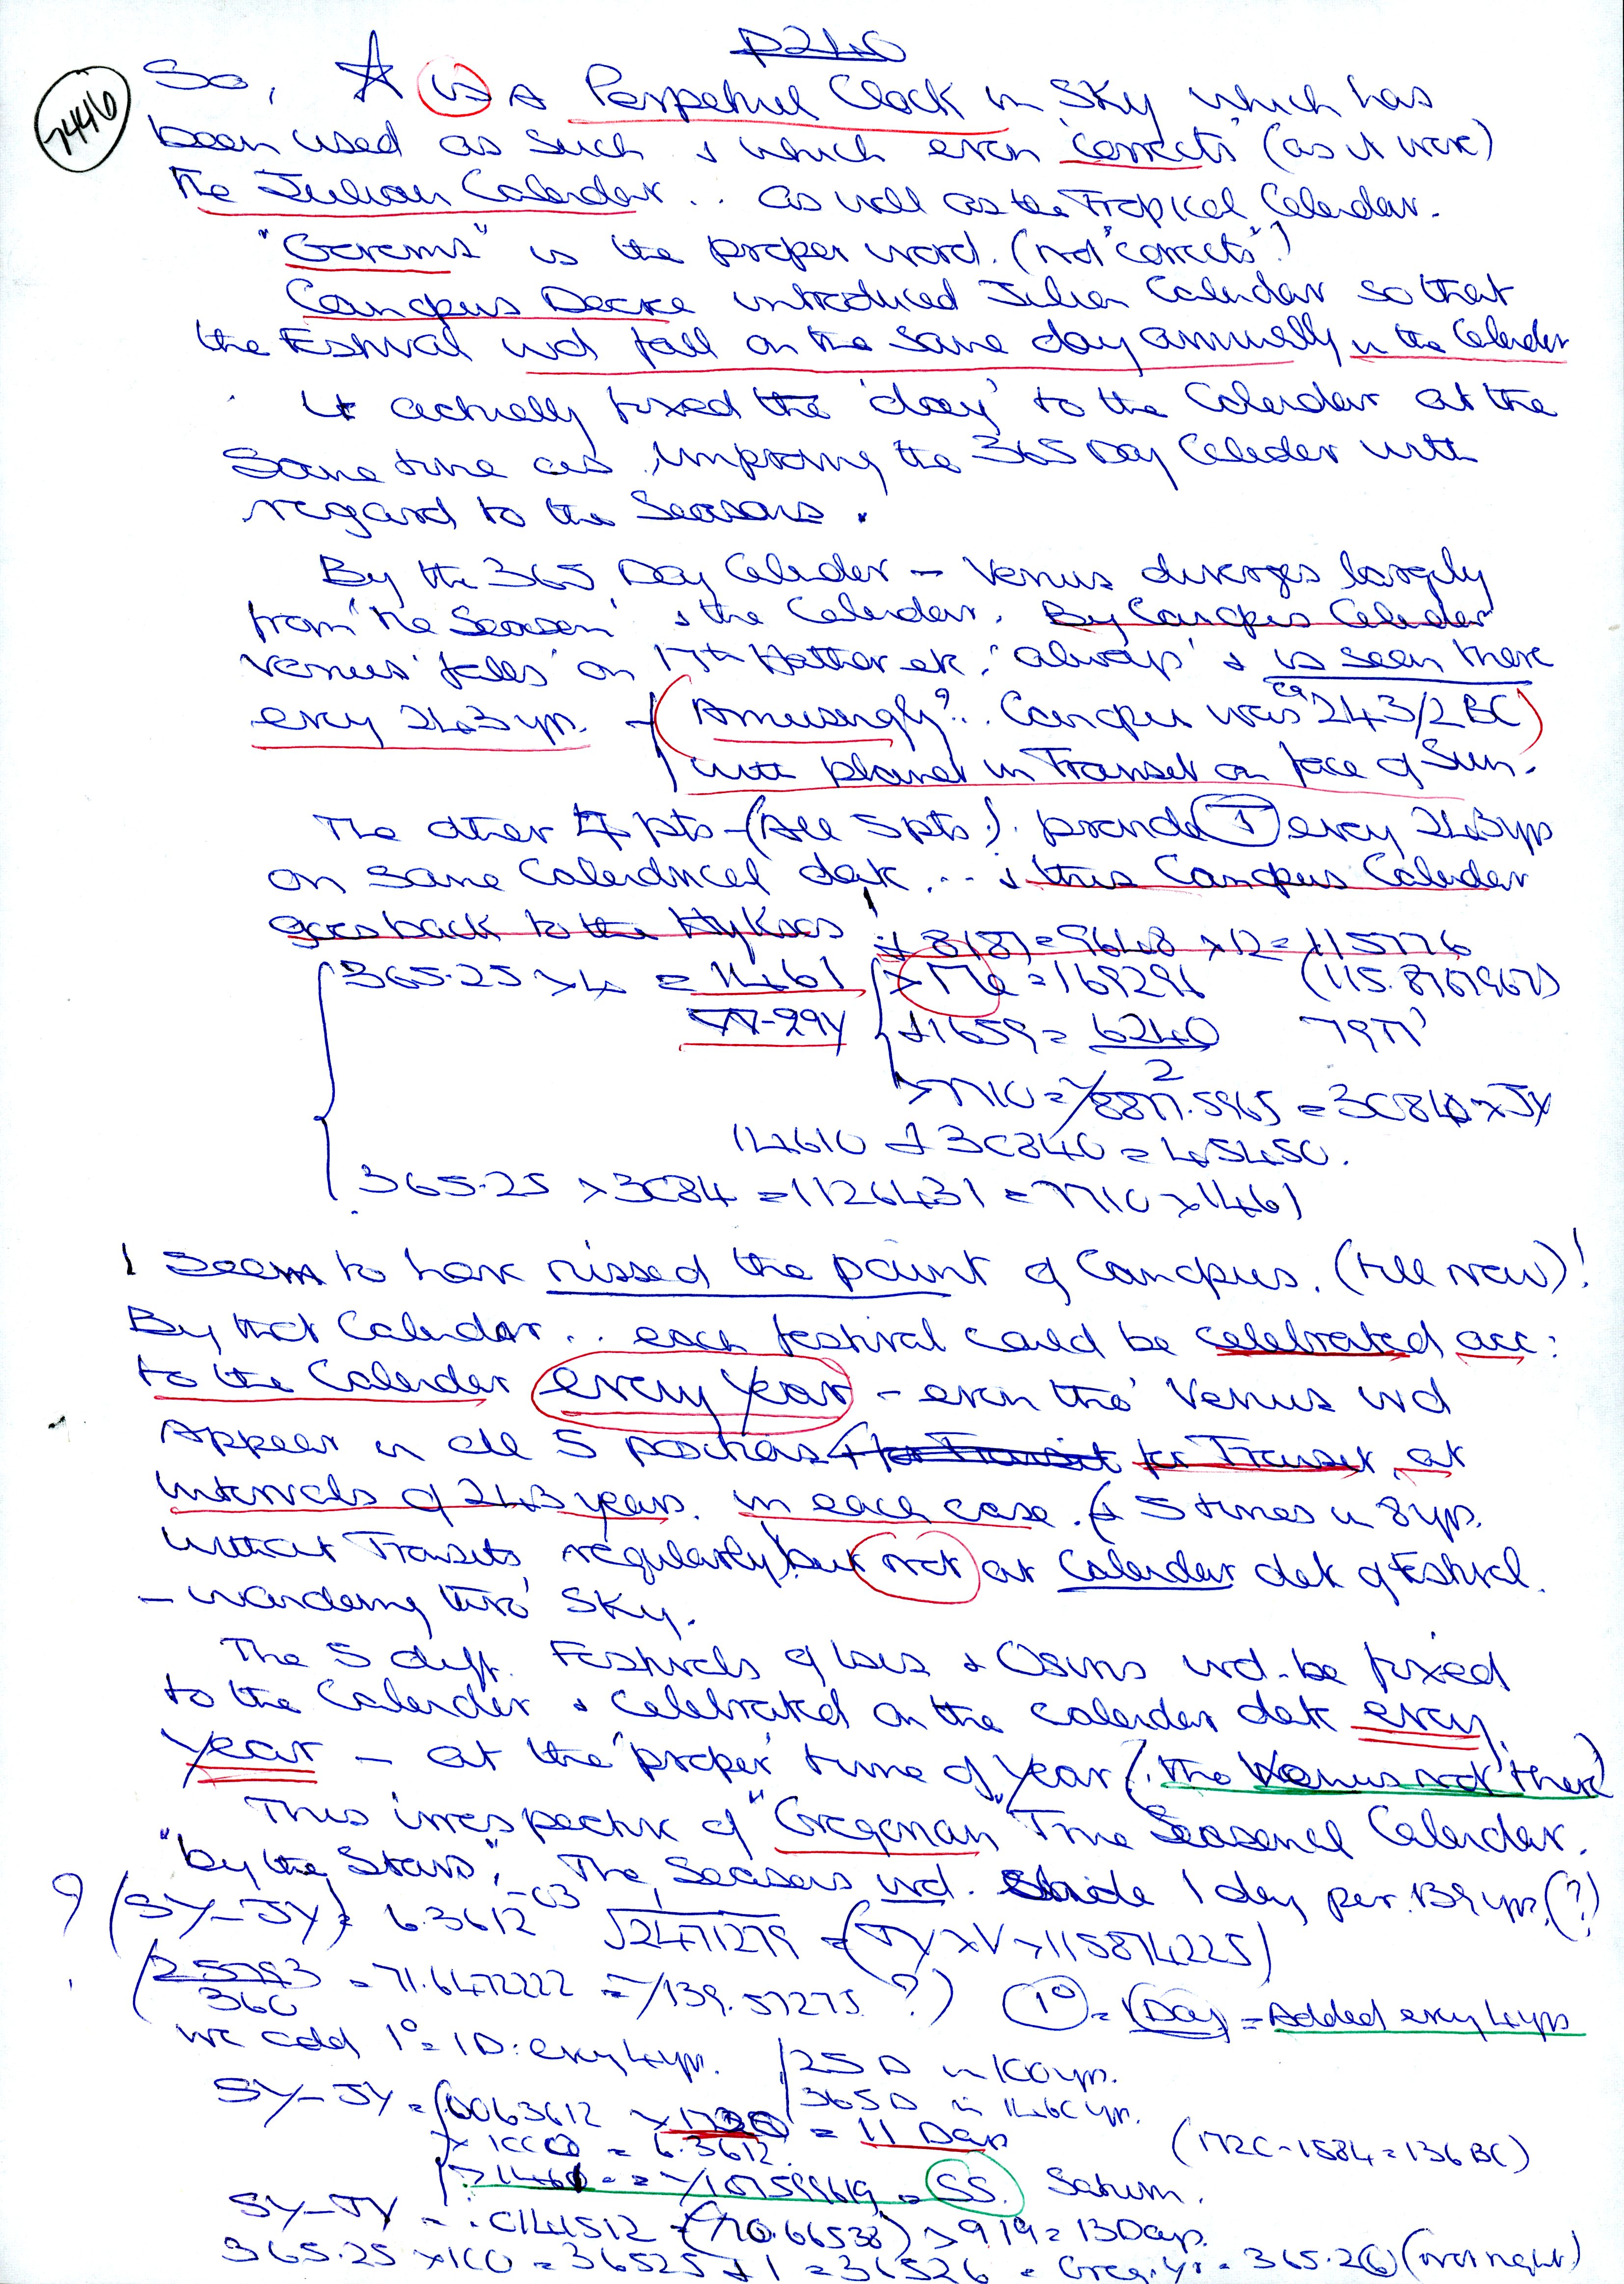 P240
7446
So, ☆ is a Perpetual Clock in Sky which has
been used as such & which even 'corrects' (as it were)
the Julian Calendar.. as well as the Tropical Calendar.
"Governs" is the proper word. (not "corrects")
Canopus Decree introduced Julian Calendar so that
the Festival wd fall on the same day annually in the Calendar
It actually fixed the 'day' to the Calendar at the
same time as improving the 365 Day Calender with
regard to the Seasons.
By the 365 Day Calender - Venus diverges largely
from 'the Season' & the Calendar. By Canopus Calender
Venus 'falls' on 17th Hathor etc. 'always' & is seen there
every 243 yrs. - (Amusingly?.. Canopus was ca 243/2 BC)
with planet in Transit on face of Sun.
The other 4 pts - (All 5 pts). provide T every 243 yrs
on same Calendrical date... & this Canopus Calendar
goes back to the Hyksos!
+ 8187 = 9648 x 12 = 115776
365.25 x 4 = 1461 = 169291 (115.8767967)
+ 1659 = 6240
2
= 30840 x JY
14610 + 30840 = 45450.
365.25 x 3084 = 1126431 = x 1461
I seem to have missed the point of Canopus. (till now)!
By that Calendar.. each festival could be celebrated acc:
to the Calender every year - even tho' Venus wd
Appear in all 5 positions for Transit at
intervals of 243 years. in each case. (& 5 times in 8 yrs.
without Transits, regularly) but not at Calendar date of Festival.
- wandering thro' Sky.
The 5 diff. Festivals of Isis & Osiris wd. be fixed
to the Calender & celebrated on the calender date every
year - at the 'proper' time of year (tho Venus not 'there')
This irrespective of "Gregorian" True Seasonal Calendar.
"by the Stars", The Seasons wd. slide 1 day per. 139 yrs. (?)
? (SY-JY) = 6.3612 -03 √2471279 = (JY x V x 115874225)
(25793 / 360 = 71.6472222 = √139.57275 ?) (1°) = (Day) = Added every 4 yrs
We add 1° = 1D: every 4 yrs. 25 D in 100 yrs.
365 D in 1460 yr.
SY-JY = .0063612 x 1730 = 11 Days
x 1000 = 6.3612 (1720 - 1584 = 136 BC)
x 1461 = √107599619 = SS. Saturn.
SY-TY = .0141512 = (70.66538) x 919 = 13 Days.
365.25 x 100 = 36525 + 1 = 36526 = Greg. Yr = 365.26 (not right)